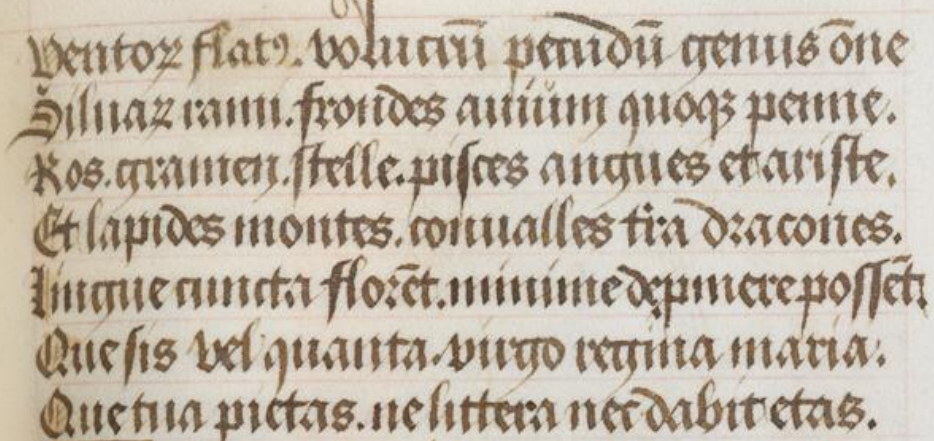 Ventoꝝ flatꝰ. volucrū pecudū genus ōne
Siluaꝝ rami. frondes auiūm quoqꝫ penne.
Ros. gramen. stelle. pisces angues et ariste.
Et lapides montes. conualles t̄ra dracones.
Lingue cuncta florēt. minime depmere possēt:
Que sis vel quanta. virgo regina maria:
Que tua pietas. ne littera nec dabit etas.